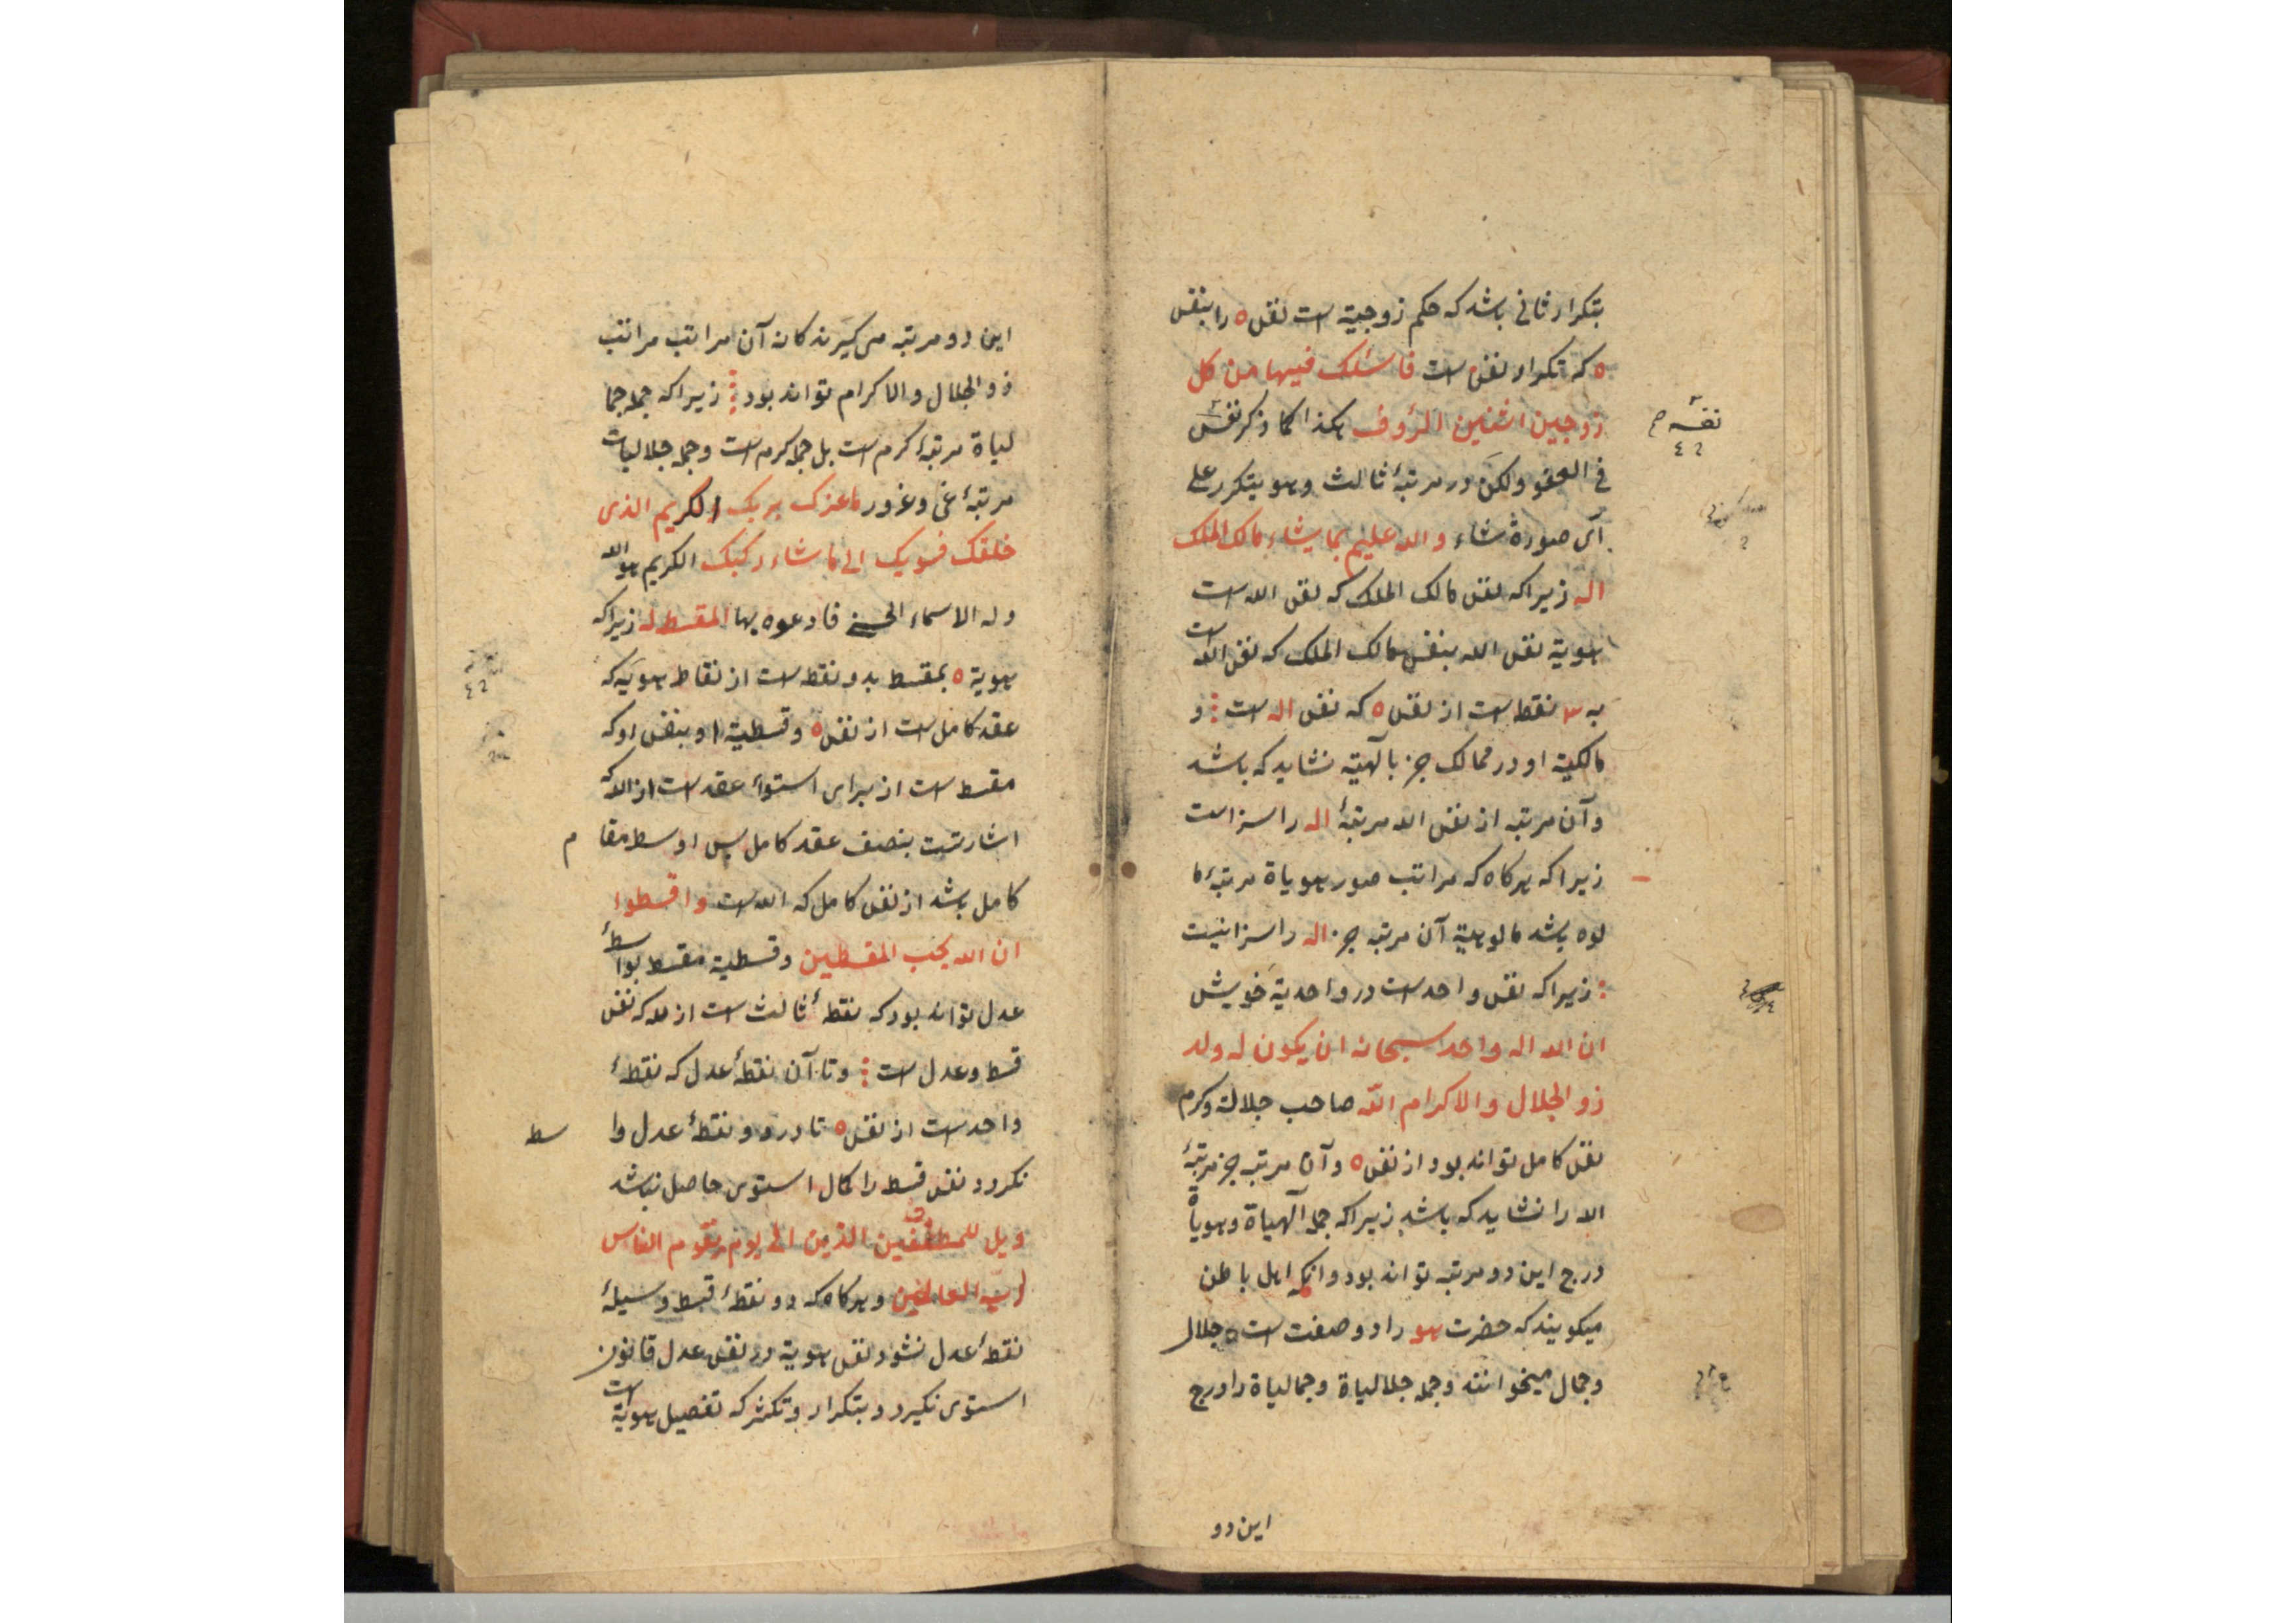 بتکرار ثانی باشد که حکم زوجیة است نفس ه را بنفس
ه که تکرار نفس است فاسلک فیها من کل
زوجین اثنین الرؤف هکذا کما ذکر نفس
فی العفو ولکن در مرتبۀ ثالث وهو یتکرر علی
ای صورة شاء والله علیم بما یشاء مالک الملک
اله زیرا که نفس مالک الملک که نفس الله است
هویة نفس الله بنفس مالک الملک که نفس الله است
به نقطه است از نفس ه که نفس اله است و
مالکیة او در ممالک جز بآلهیة نشاید که باشد
وآن مرتبه از نفس الله مرتبۀ اله را سزاست
زیرا که هرکاه که مراتب صور هویاة مرتبۀ ما
لوه باشد مالوهیة آن مرتبه جز اله را سزا نیست
زیرا که نفس واحد است در واحدیة خویش
ان الله اله واحد سبحانه ان یکون له ولد
ذو الجلال والاکرام الله صاحب جلالة وکرم
نفس کامل تواند بود از نفس ه وآن مرتبه جز مرتبۀ
الله را نشاید که باشد زیرا که جمله آلهیاة وهویاة
درج این دو مرتبه تواند بود وانکه اهل باطن
میکویند که حضرت هو را دو صفت است جلال
وجمال میخوانند وجمله جلالیاة وجمالیاة را درج
این دو
نفسه
این دو مرتبه می کیرند کانه آن مراتب مراتب
ذو الجلال والاکرام تواند بود زیرا که جمله جما
لیاة مرتبۀ کرم است بل جمله کرم است وجمله جلالیات
مرتبۀ غی وغرور ما غرک بربک الکریم الذی
خلقک فسویک الی ما شاء رکبک الکریم هو الله
وله الاسماء الحسنی فادعوه بها المقسط له زیرا که
هویة ه بمقسط بدو نقطه است از نقاط هویة که
عقد کامل است از نفس ه وقسطیة او بنفس او که
مقسط است از برای استواء عقد است از الله که
اشارتست بنصف عقد کامل پس اوسط مقا م
کامل باشد از نفس کامل که الله است واقسطوا
ان الله یحب المقسطین وقسطیة مقسط بواسطۀ
عدل تواند بود که نقطۀ ثالث است از که نفس
قسط وعدل است وتا آن نقطۀ عدل که نقطۀ
واحد است از نفس ه تا در دو نقطۀ عدل وا سط
نکردد نفس قسط را کمال استوی حاصل نباشد
ویل للمطففین الذین الی یوم یقوم الناس
لرب العالمین وهرکاه که دو نقطۀ قسط وسیلۀ
نقطۀ عدل نشود نفس هویة در نفس عدل قانون
استوی نکیرد وبتکرار وتکثر که تفصیل هویة است